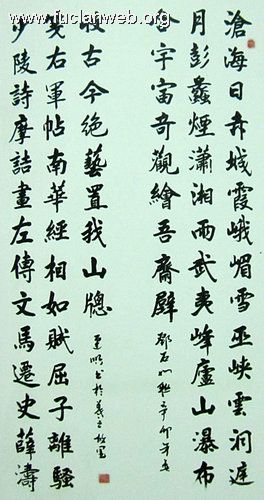 滄海日赤城霞峨嵋雪巫峽雲洞庭
月彭蠡煙瀟湘雨武夷峰廬山瀑布
合宇宙奇觀繪吾齋壁
鄧石如聯辛卯年
少陵詩摩詰畫左傳文馬遷史薛濤
箋右軍帖南華經相如賦屈子離騷
收古今絕藝置我山牕